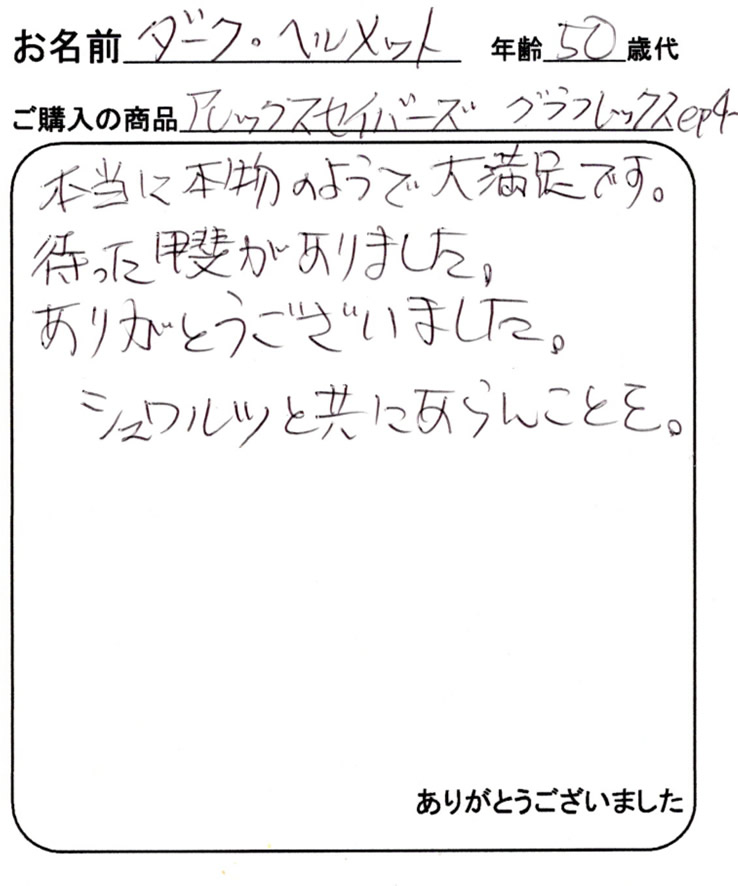 お名前 ダーク・ヘルメット 年齢 50 歳代
ご購入の商品 アレックスセイバーズ グラフレックスep4
本当に本物のようで大満足です。
待った甲斐がありました。
ありがとうございました。
シュワルツと共にあらんことを。
ありがとうございました